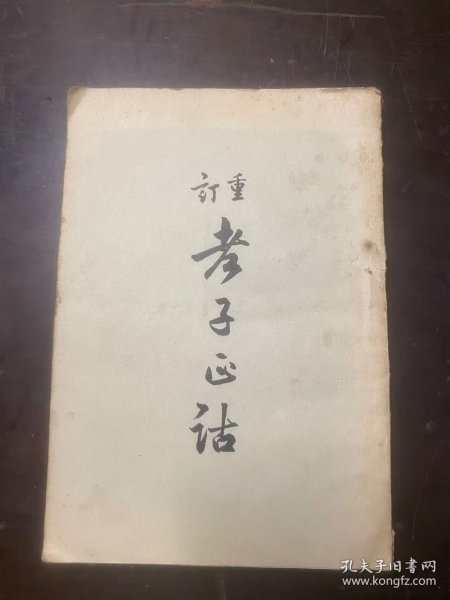 重訂
老子正詁
孔夫子旧书网
www.kongfz.com